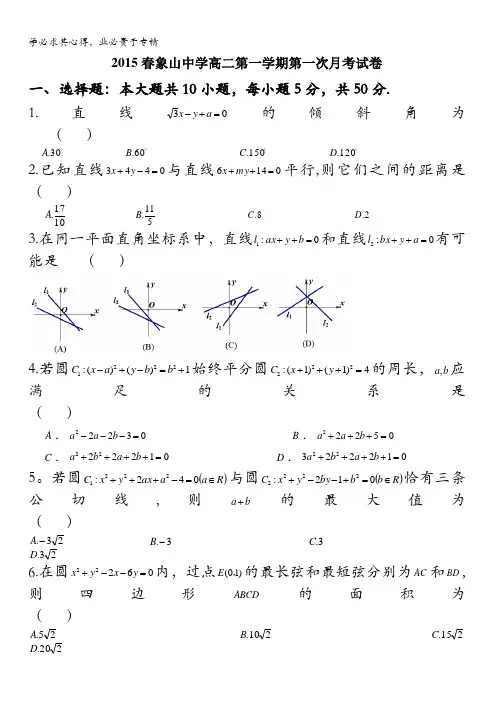 学必求其心得，业必贵于专精
2015春象山中学高二第一学期第一次月考试卷
一、选择题：本大题共10小题，每小题5分，共50分.
1. 直线 √3x－y＋a＝0 的倾斜角为
( )
A.30° B.60° C.150° D.120°
2.已知直线3x＋4y－4＝0与直线6x＋my＋14＝0平行,则它们之间的距离是
( )
A.17/10 B.11/5 C.8 D.2
3.在同一平面直角坐标系中，直线l₁:ax＋y＋b＝0和直线l₂:bx＋y＋a＝0有可
能是 ( )
y l₁ l₂ O x (A)
y l₁ l₂ O x (B)
y O x l₂ l₁ (C)
y O x l₁ l₂ (D)
4.若圆C₁:(x－a)²＋(y－b)²＝b²＋1始终平分圆C₂:(x＋1)²＋(y＋1)²＝4的周长，a,b应
满足的关系是
( )
A．a²－2a－2b－3＝0 B．a²＋2a＋2b＋5＝0
C．a²＋2b²＋2a＋2b＋1＝0 D．3a²＋2b²＋2a＋2b＋1＝0
5。若圆C₁:x²＋y²＋2ax＋a²－4＝0(a∈R)与圆C₂:x²＋y²－2by－1＋b²＝0(b∈R)恰有三条
公切线，则a＋b的最大值为
( )
A.－3√2 B.－3 C.3
D.3√2
6.在圆x²＋y²－2x－6y＝0内，过点E(0,1)的最长弦和最短弦分别为AC和BD，
则四边形ABCD的面积为
( )
A.5√2 B.10√2 C.15√2
D.20√2